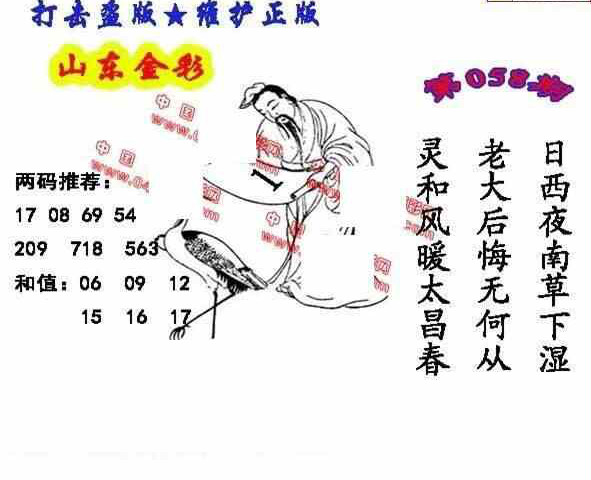 打击盗版★维护正版
山东金彩
第058期
两码推荐:
17 08 69 54
209 718 563
和值:06 09 12
15 16 17
1
日西夜南草下湿
老大后悔无何从
灵和风暖太昌春
中国
www.
中国
www.04
中
www.
.com